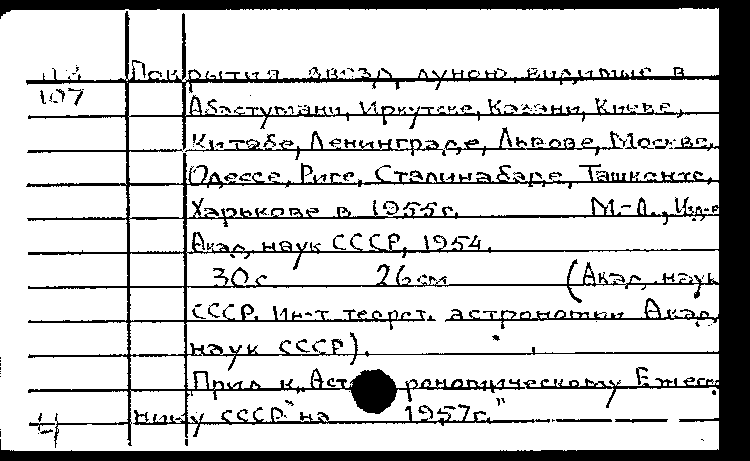 Покрытия звезд луною, видимые в
107
Абастумани, Иркутске, Казани, Киеве,
Китабе, Ленинграде, Львове, Москве,
Одессе, Риге, Сталинабаде, Ташкенте,
Харькове в 1955г. М.-Л., Изд-в
Акад, наук СССР, 1954.
30с 26см (Акад, наук
СССР. Ин-т теорет. астрономии Акад,
наук СССР).
Прил к „Астрономическому Ежего
нику СССР" на 1957г."